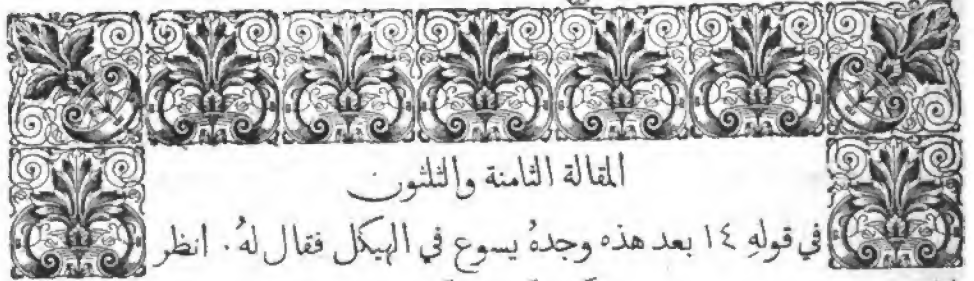 المقالة الثامنة والثلثون
في قولهِ ١٤ بعد هذه وجدهُ يسوع في الهيكل فقال لهُ. انظر